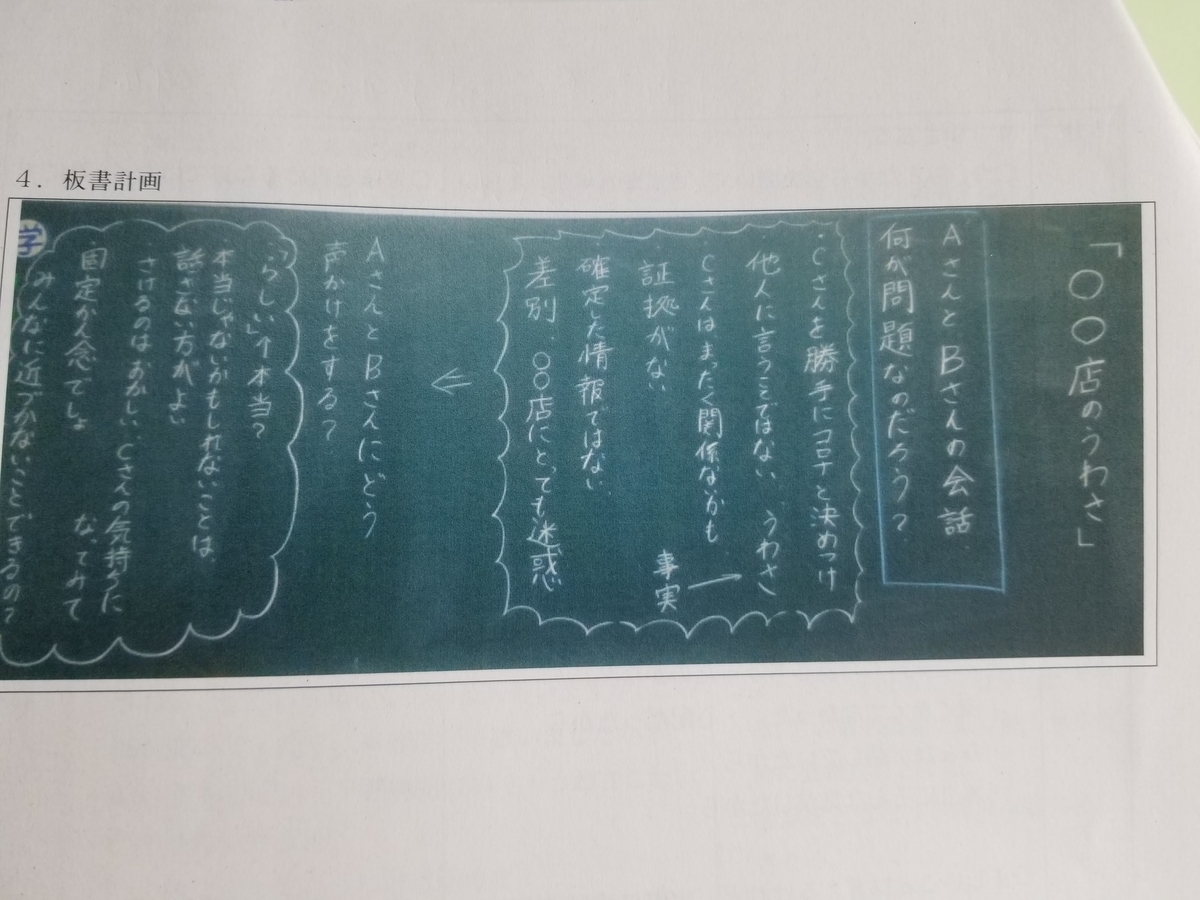 4．板書計画
「○○店のうわさ」
AさんとBさんの会話
何が問題なのだろう？
・Cさんを勝手にコロナと決めつけ
他人に言うことではない　うわさ
・Cさんは、まったく関係ないかも
事実
証拠がない
確定した情報ではない
差別、○○店にとっても迷惑
AさんとBさんにどう
声かけをする？
・「らしい」本当？
・本当じゃないかもしれないことは、
話さない方がよい
・さけるのはおかしい、Cさんの気持ちに
なってみて
・固定かん念でしょ
・みんなに近づかないことできるの？
学